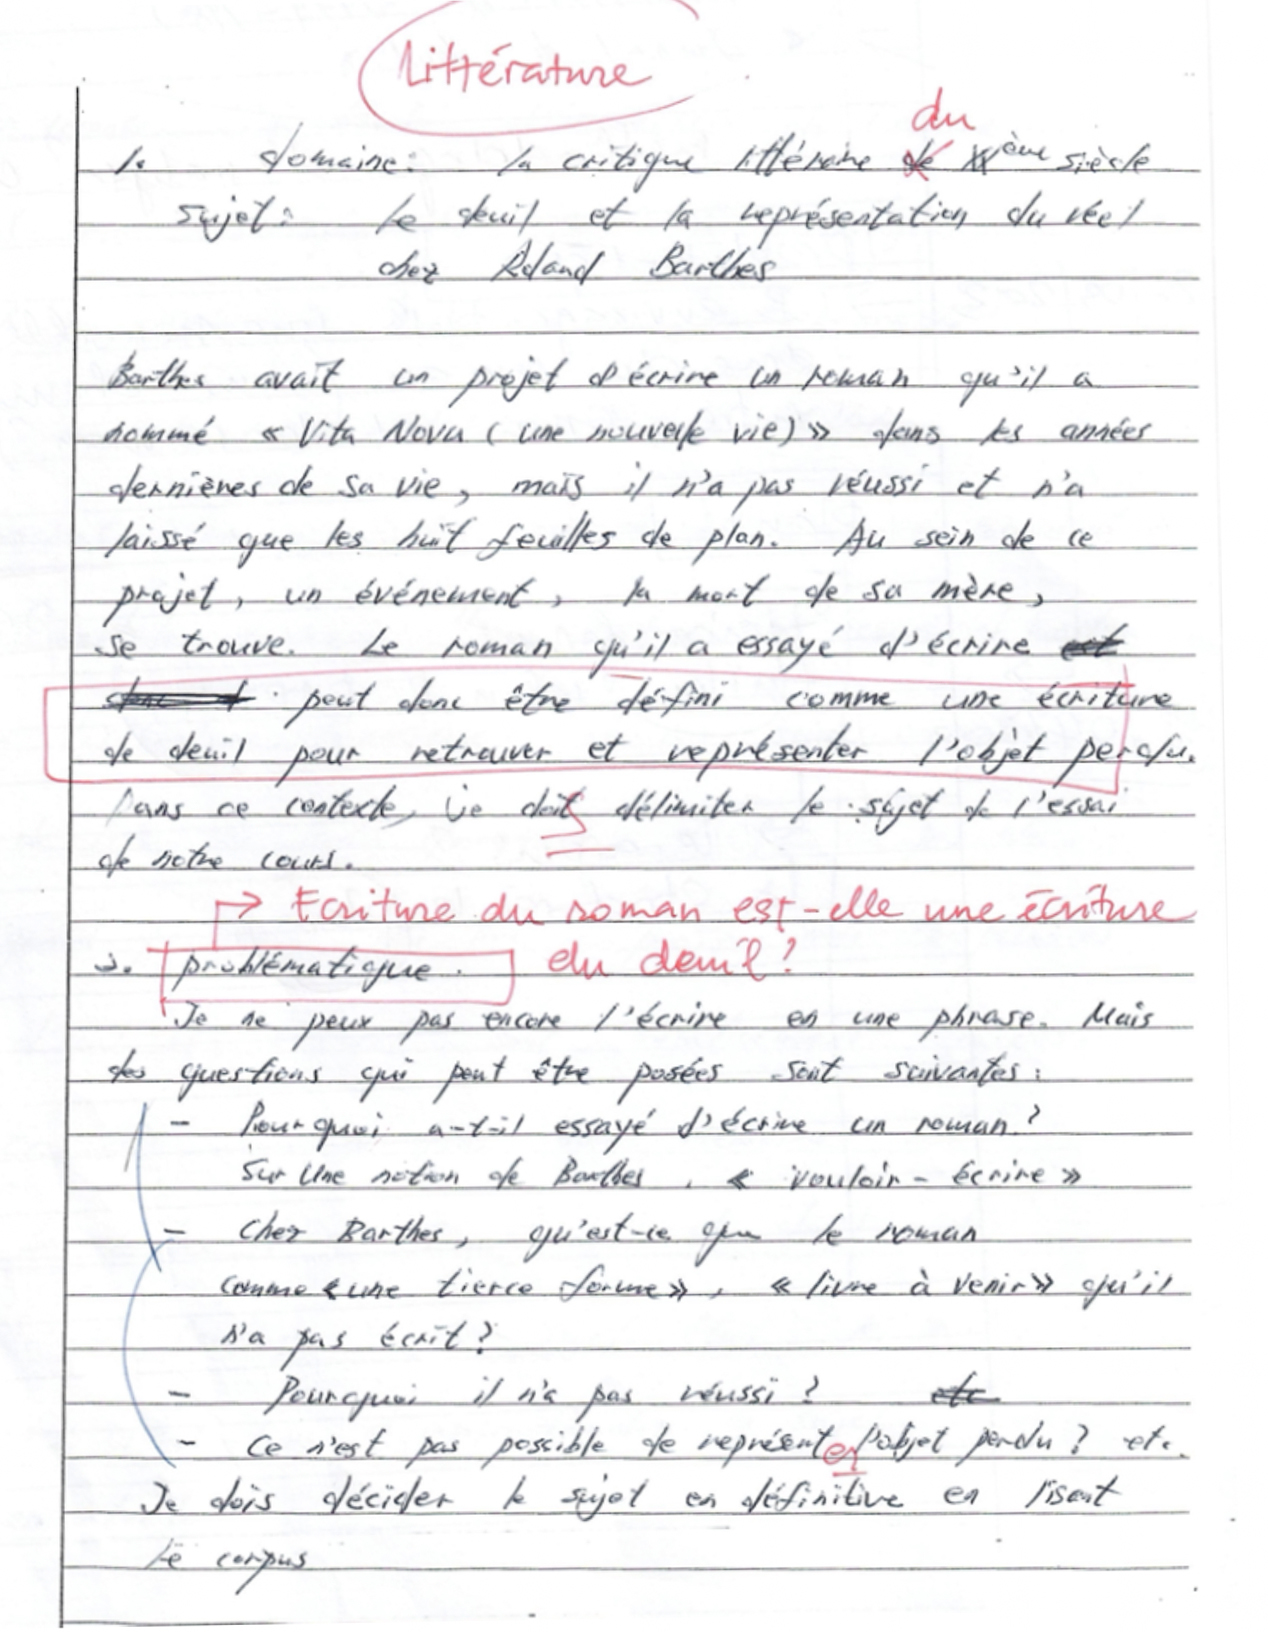 Littérature
du
1. domaine: la critique littéraire de XXème siècle
sujet: le deuil et la représentation du réel
chez Roland Barthes
Barthes avait un projet d'écrire un roman qu'il a
nommé « Vita Nova (une nouvelle vie) » dans les années
dernières de sa vie, mais il n'a pas réussi et n'a
laissé que les huit feuilles de plan. Au sein de ce
projet, un événement, la mort de sa mère,
se trouve. Le roman qu'il a essayé d'écrire
peut donc être défini comme une écriture
de deuil pour retrouver et représenter l'objet perdu.
Dans ce contexte, je doit délimiter le sujet de l'essai
de notre cours.
→ Ecriture du roman est-elle une écriture
problématique. du deuil?
Je ne peux pas encore l'écrire en une phrase. Mais
des questions qui peut être posées sont suivantes:
- Pourquoi a-t-il essayé d'écrire un roman?
Sur une notion de Barthes, « vouloir-écrire »
- Chez Barthes, qu'est-ce que le roman
comme « une tierce forme », « livre à venir » qu'il
n'a pas écrit?
- Pourquoi il n'a pas réussi? etc
- Ce n'est pas possible de représenter l'objet perdu? etc.
Je dois décider le sujet en définitive en lisant
le corpus